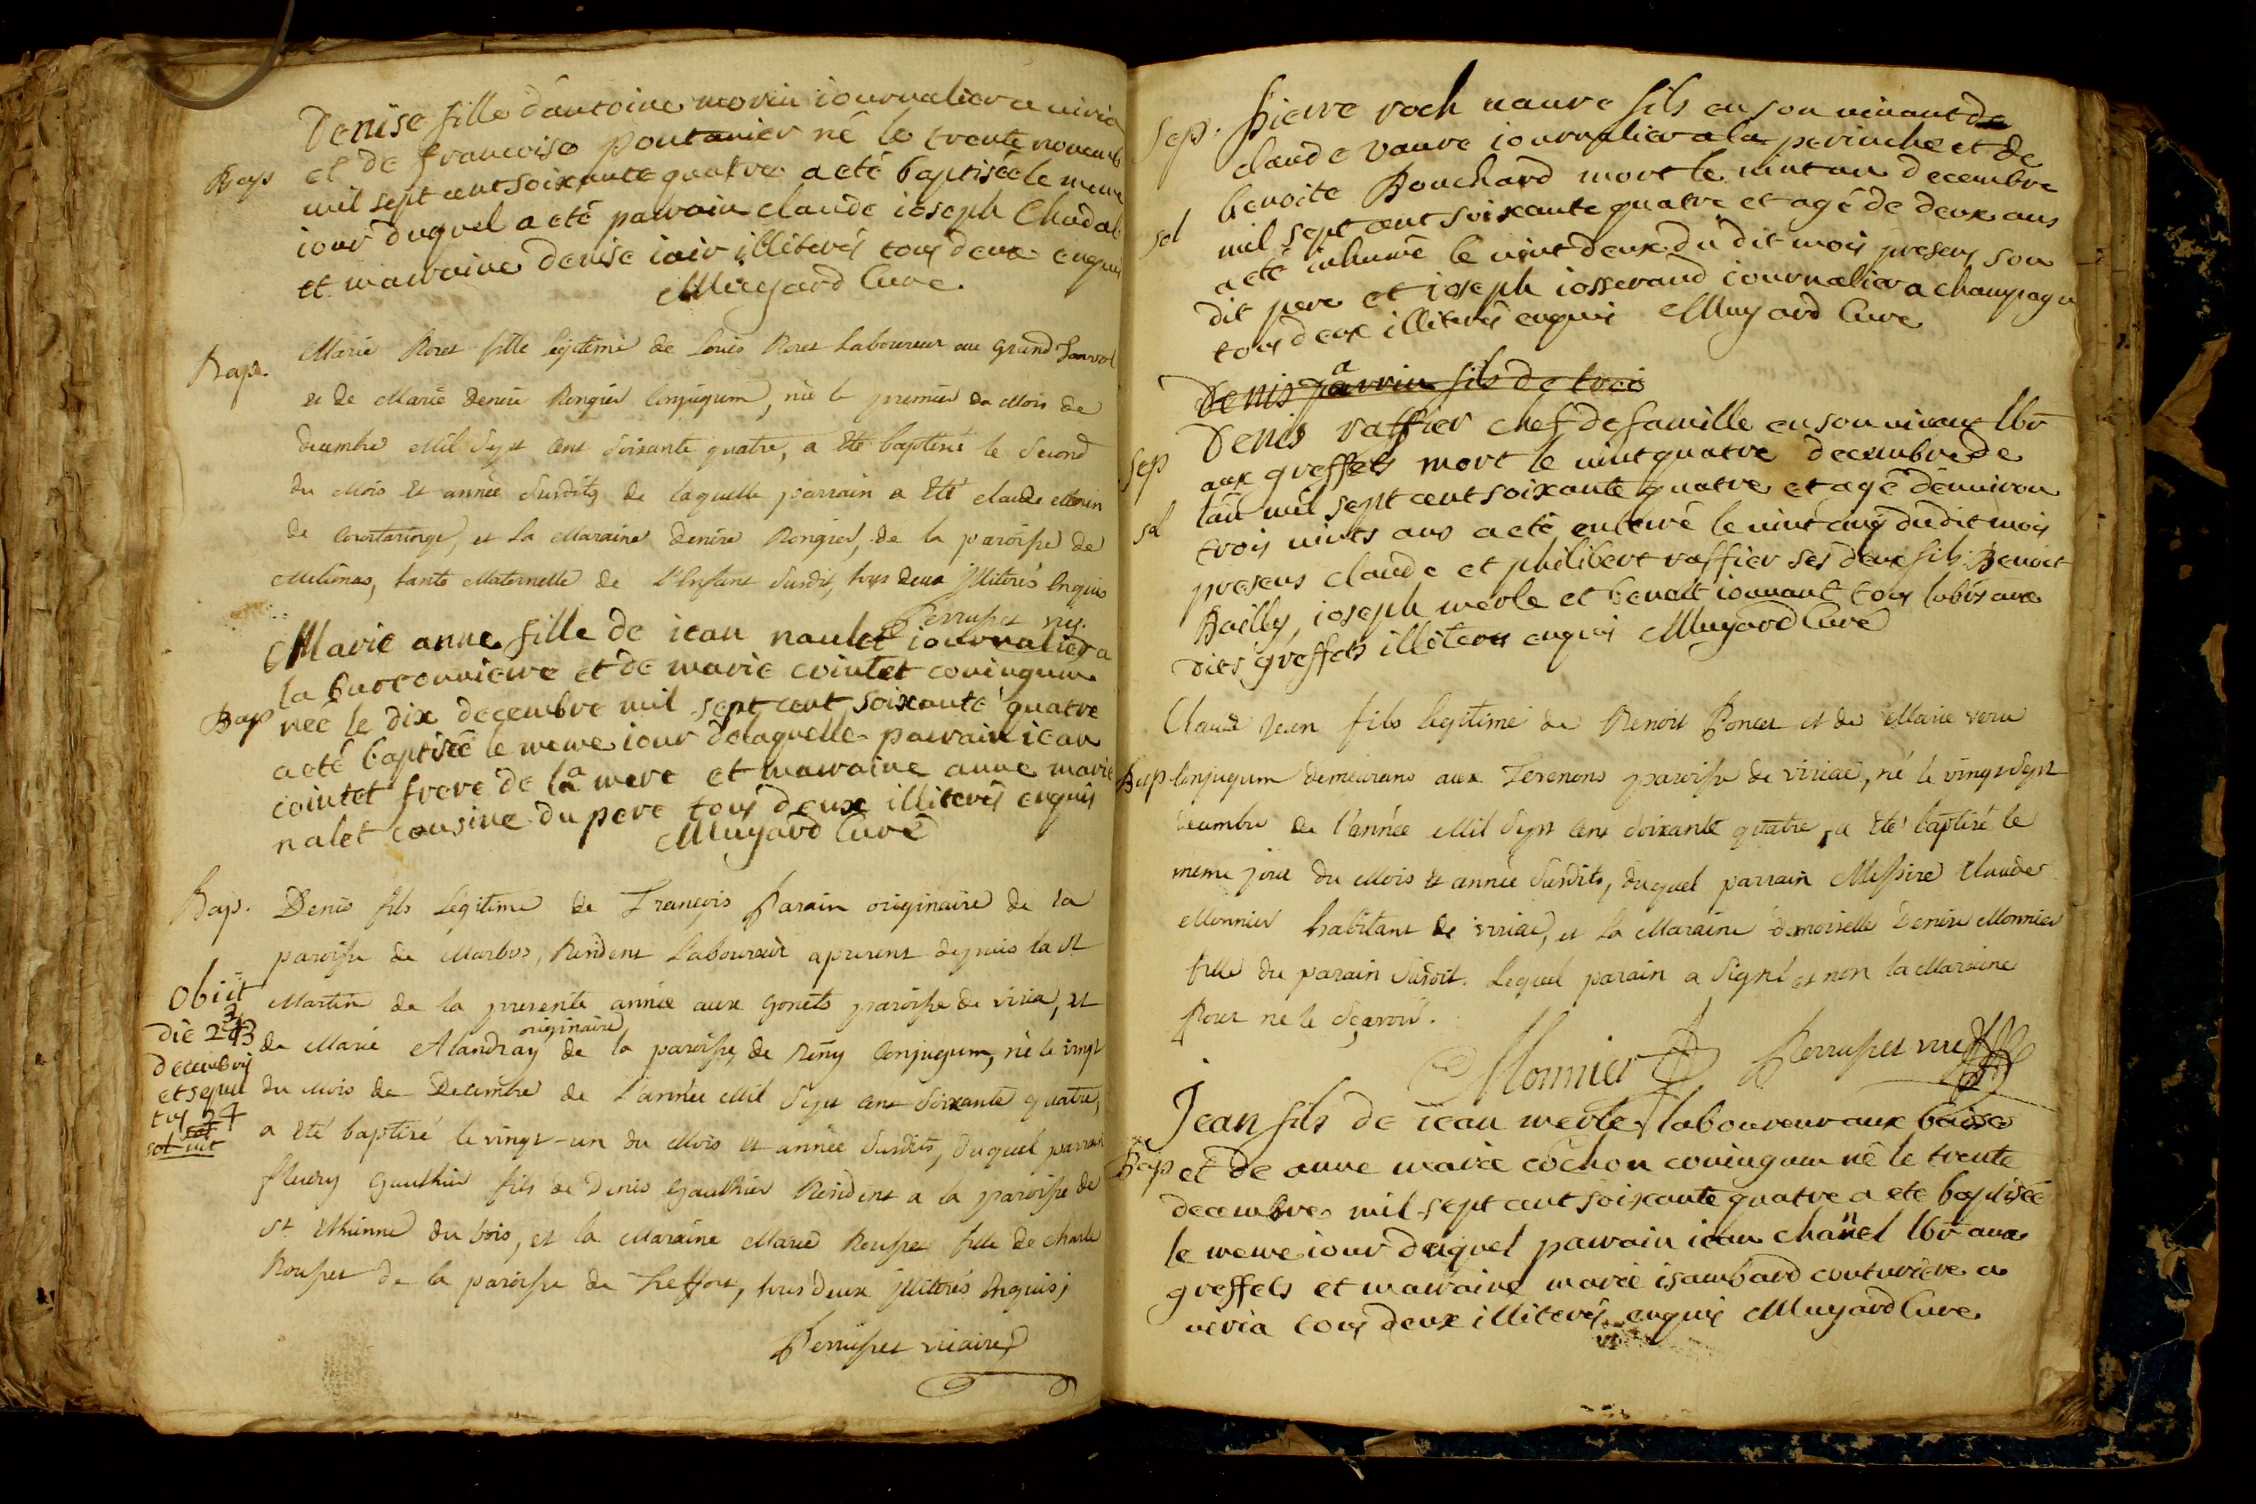 Denise fille d'antoine morin iournalier a viria
Bap et de francoise pontanier né le trente novemb
mil sept cent soixante quatre a eté baptisée le meme
iour duquel a eté parrain claude ioseph Chadal
et marraine denise iair illiterés tous deux enquis
Muyard Curé
Bap. Marie Roret fille legitime de Louis Roret Laboureur au grand
et de Marie Denise Rongier Conjugum, née le premier du Mois de
decembre Mil Sept Cent Soixante quatre, a été baptisée le Second
du Mois et année Susdits, de laquelle parrain a Eté claude Morin
de Courtaringe, et La Maraine Denise Rongier, de la paroisse de
tante Maternelle de L'Enfant Susdit, tous deux jlliterés Enquis
Perruset vic.
Marie anne fille de iean naulet iournalier a
la et de marie cointet coniugum
Bap neé le dix decembre mil sept cent soixante quatre
a eté baptisée le meme iour de laquelle parrain iean
cointet frere de la mere et marraine anne marie
nalet cousine du pere tous deux illiterés enquis
Muyard Curé
Bap. Denis fils Legitime de François Parain originaire de la
paroisse de Marbos, Resident Laboureur apresent depuis la st
Obiit Martin de la presente année aux gonets paroisse de viria, et
originaire
die 23 de Marie Alandray de la paroisse, de Conjugum, né le vingt
decembris
et sepul du Mois de Decembre de L'année Mil Sept Cent Soixante quatre,
tus 24
sol vit a Eté baptisé le vingt-un du Mois et année Susdits, duquel parrain
fleury Gauthier fils de Denis Gauthier Resident a la paroisse de
St Ethienne du bois, et la Maraine Marie Rousset fille de charle
Rousset de la paroisse de Treffort, tous deux jlliterés Enquis;
Perruset vicaire
Sep. Pierre roch vaure fils en son vivant de
claude vaure iournalier a la perinche et de
benoite Bouchard mort le vint un decembre
sol mil sept cent soixante quatre et agé de deux ans
a eté inhumé le vint deux du dit mois presens son
dit pere et ioseph iosserand iournalier a champagne
tous deux illiterés enquis Muyard Curé
Denis parrin fils de troi
Denis raffier chef de famille en son vivant lbr
Sep aux greffets mort le vint quatre decembre de
lan mil sept cent soixante quatre et agé denviron
sol trois vints ans a eté enterré le vint cinq du dit mois
presens claude et philibert raffier ses deux fils Benoit
Bailly, ioseph merle et benoit iouvant tous lbrs aux
dits greffets illiterés enquis Muyard Curé
Claude Jean fils legitime de Benoit Poncet et de Marie
Bap Conjugum demeurans aux Terenons paroisse de viriac, né le vingt Sept
decembre de l'année Mil Sept Cent Soixante quatre, a Eté baptisé le
meme jour du Mois et année Susdits, duquel parrain Messire Claude
Monnier habitant de viriac, et la Maraine demoiselle Denise Monnier
fille du parain Susdit. Lequel parain a Signé et non la Maraine
Pour ne le Sçavoir.
Monnier Perruset vic
Jean fils de iean merle laboureur aux
Bap et de anne marie cochon coniugum né le trente
decembre mil sept cent soixante quatre a ete baptisée
le meme iour duquel parrain iean channel lbr aux
greffets et marraine marie isambard couturiere a
viria tous deux illiterés enquis Muyard Curé